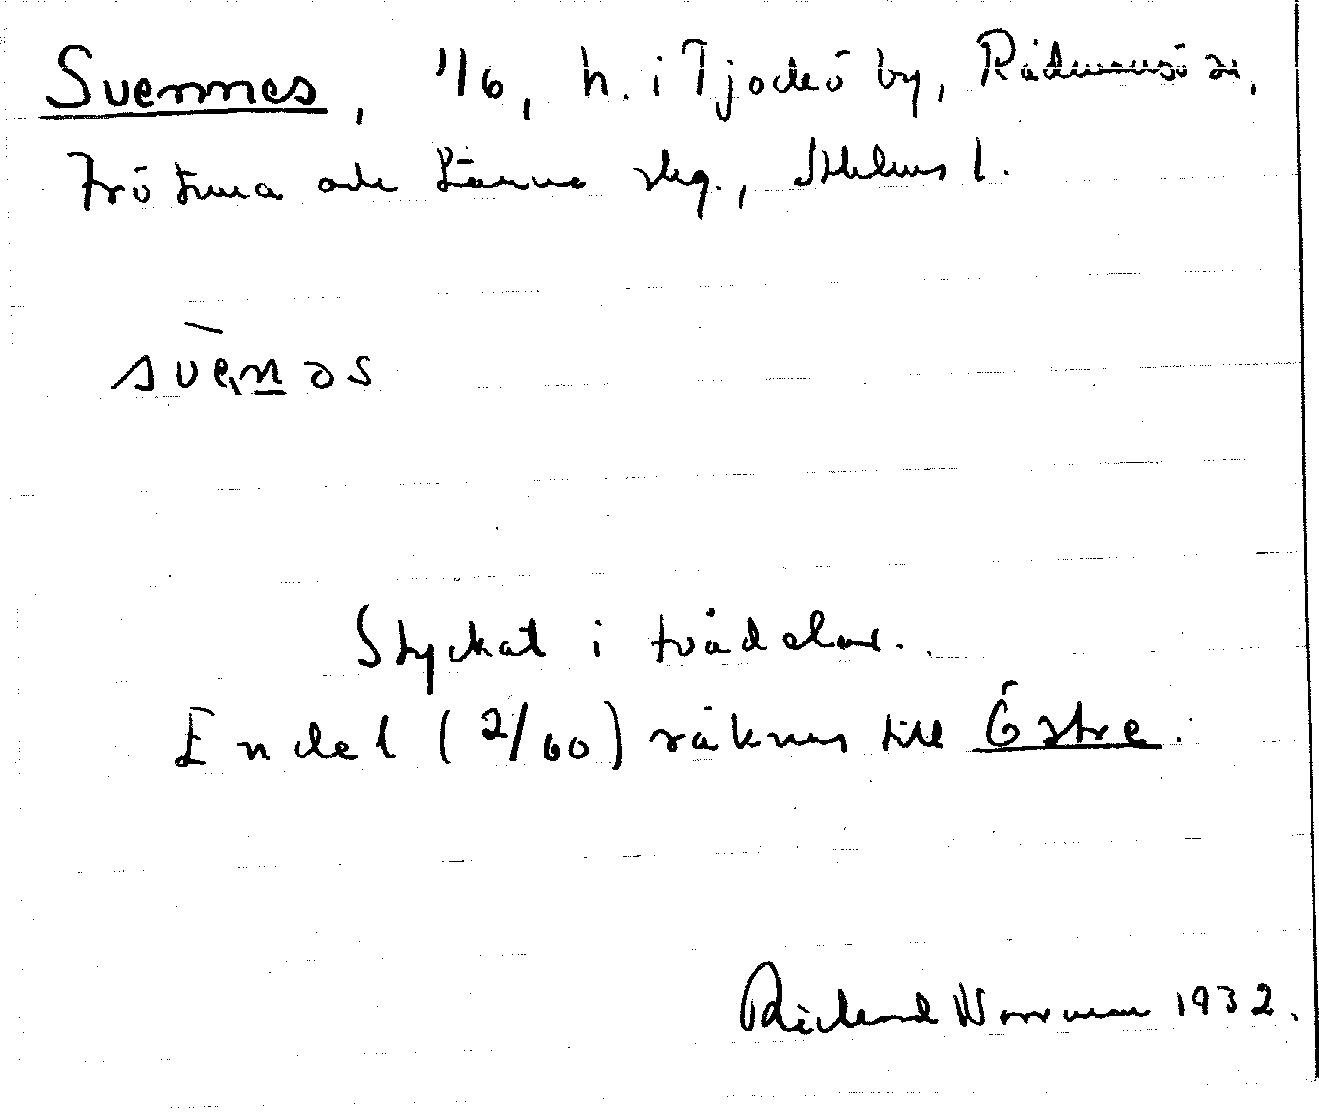 Svennes, 1/6, h. i Tjockö by, Rådmansö sn,
Frötuna och Länna skg., Sthlms l.
svenəs
Styckat i två delar.
En del (2/60) räknas till Östra.
Rickard Norrman 1932.